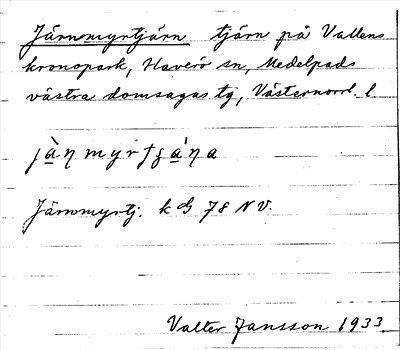 Järnmyrtjärn tjärn på Vallens
kronopark, Haverö sn, Medelpads
västra domsagas tg, Västernorrl. l.
Järnmyrtj. k G 78 NV.
Valter Jansson 1933